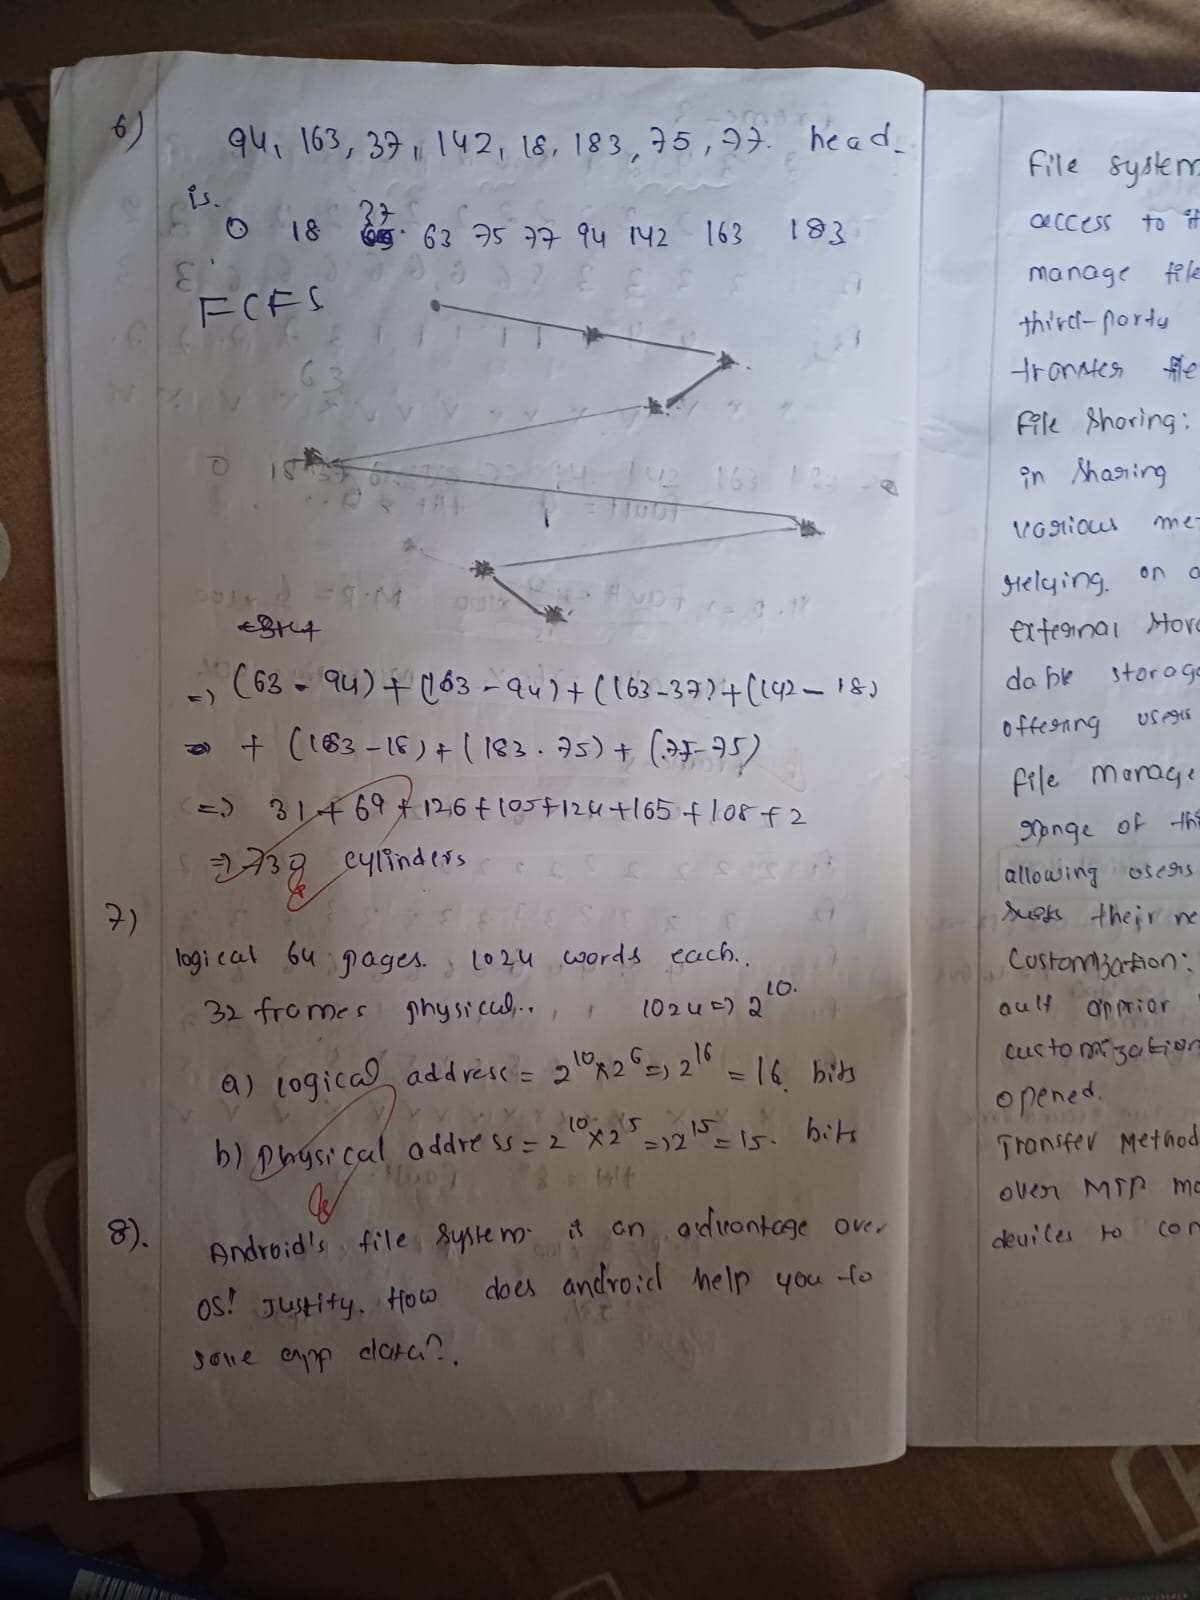 6)
94, 163, 37, 142, 18, 183, 75, 77. head
is.
37
0 18 63 75 77 94 142 163 183
FCFS
=> (63 - 94) + (163 - 94) + (163-37) + (142 - 18)
+ (183 - 18) + (183 - 75) + (77-75)
=> 31 + 69 + 126 + 105 + 124 + 165 + 108 + 2
=> 730 cylinders
7)
logical 64 pages. 1024 words each..
32 frames physical.. 1024 => 2^10.
a) logical address = 2^10 x 2^6 => 2^16 = 16 bits
b) physical address = 2^10 x 2^5 => 2^15 = 15. bits
8).
Android's file system is an advantage over
OS! Justify. How does android help you to
save app data?.
File system
access to it
manage file
third-party
transfer file
File Sharing:
in Sharing
various me
relying. on a
external stor
dable storag
offering users
file manage
range of th
allowing users
suits their ne
Customization:
customization
opened.
Transfer Method
over MTP mo
devices to con